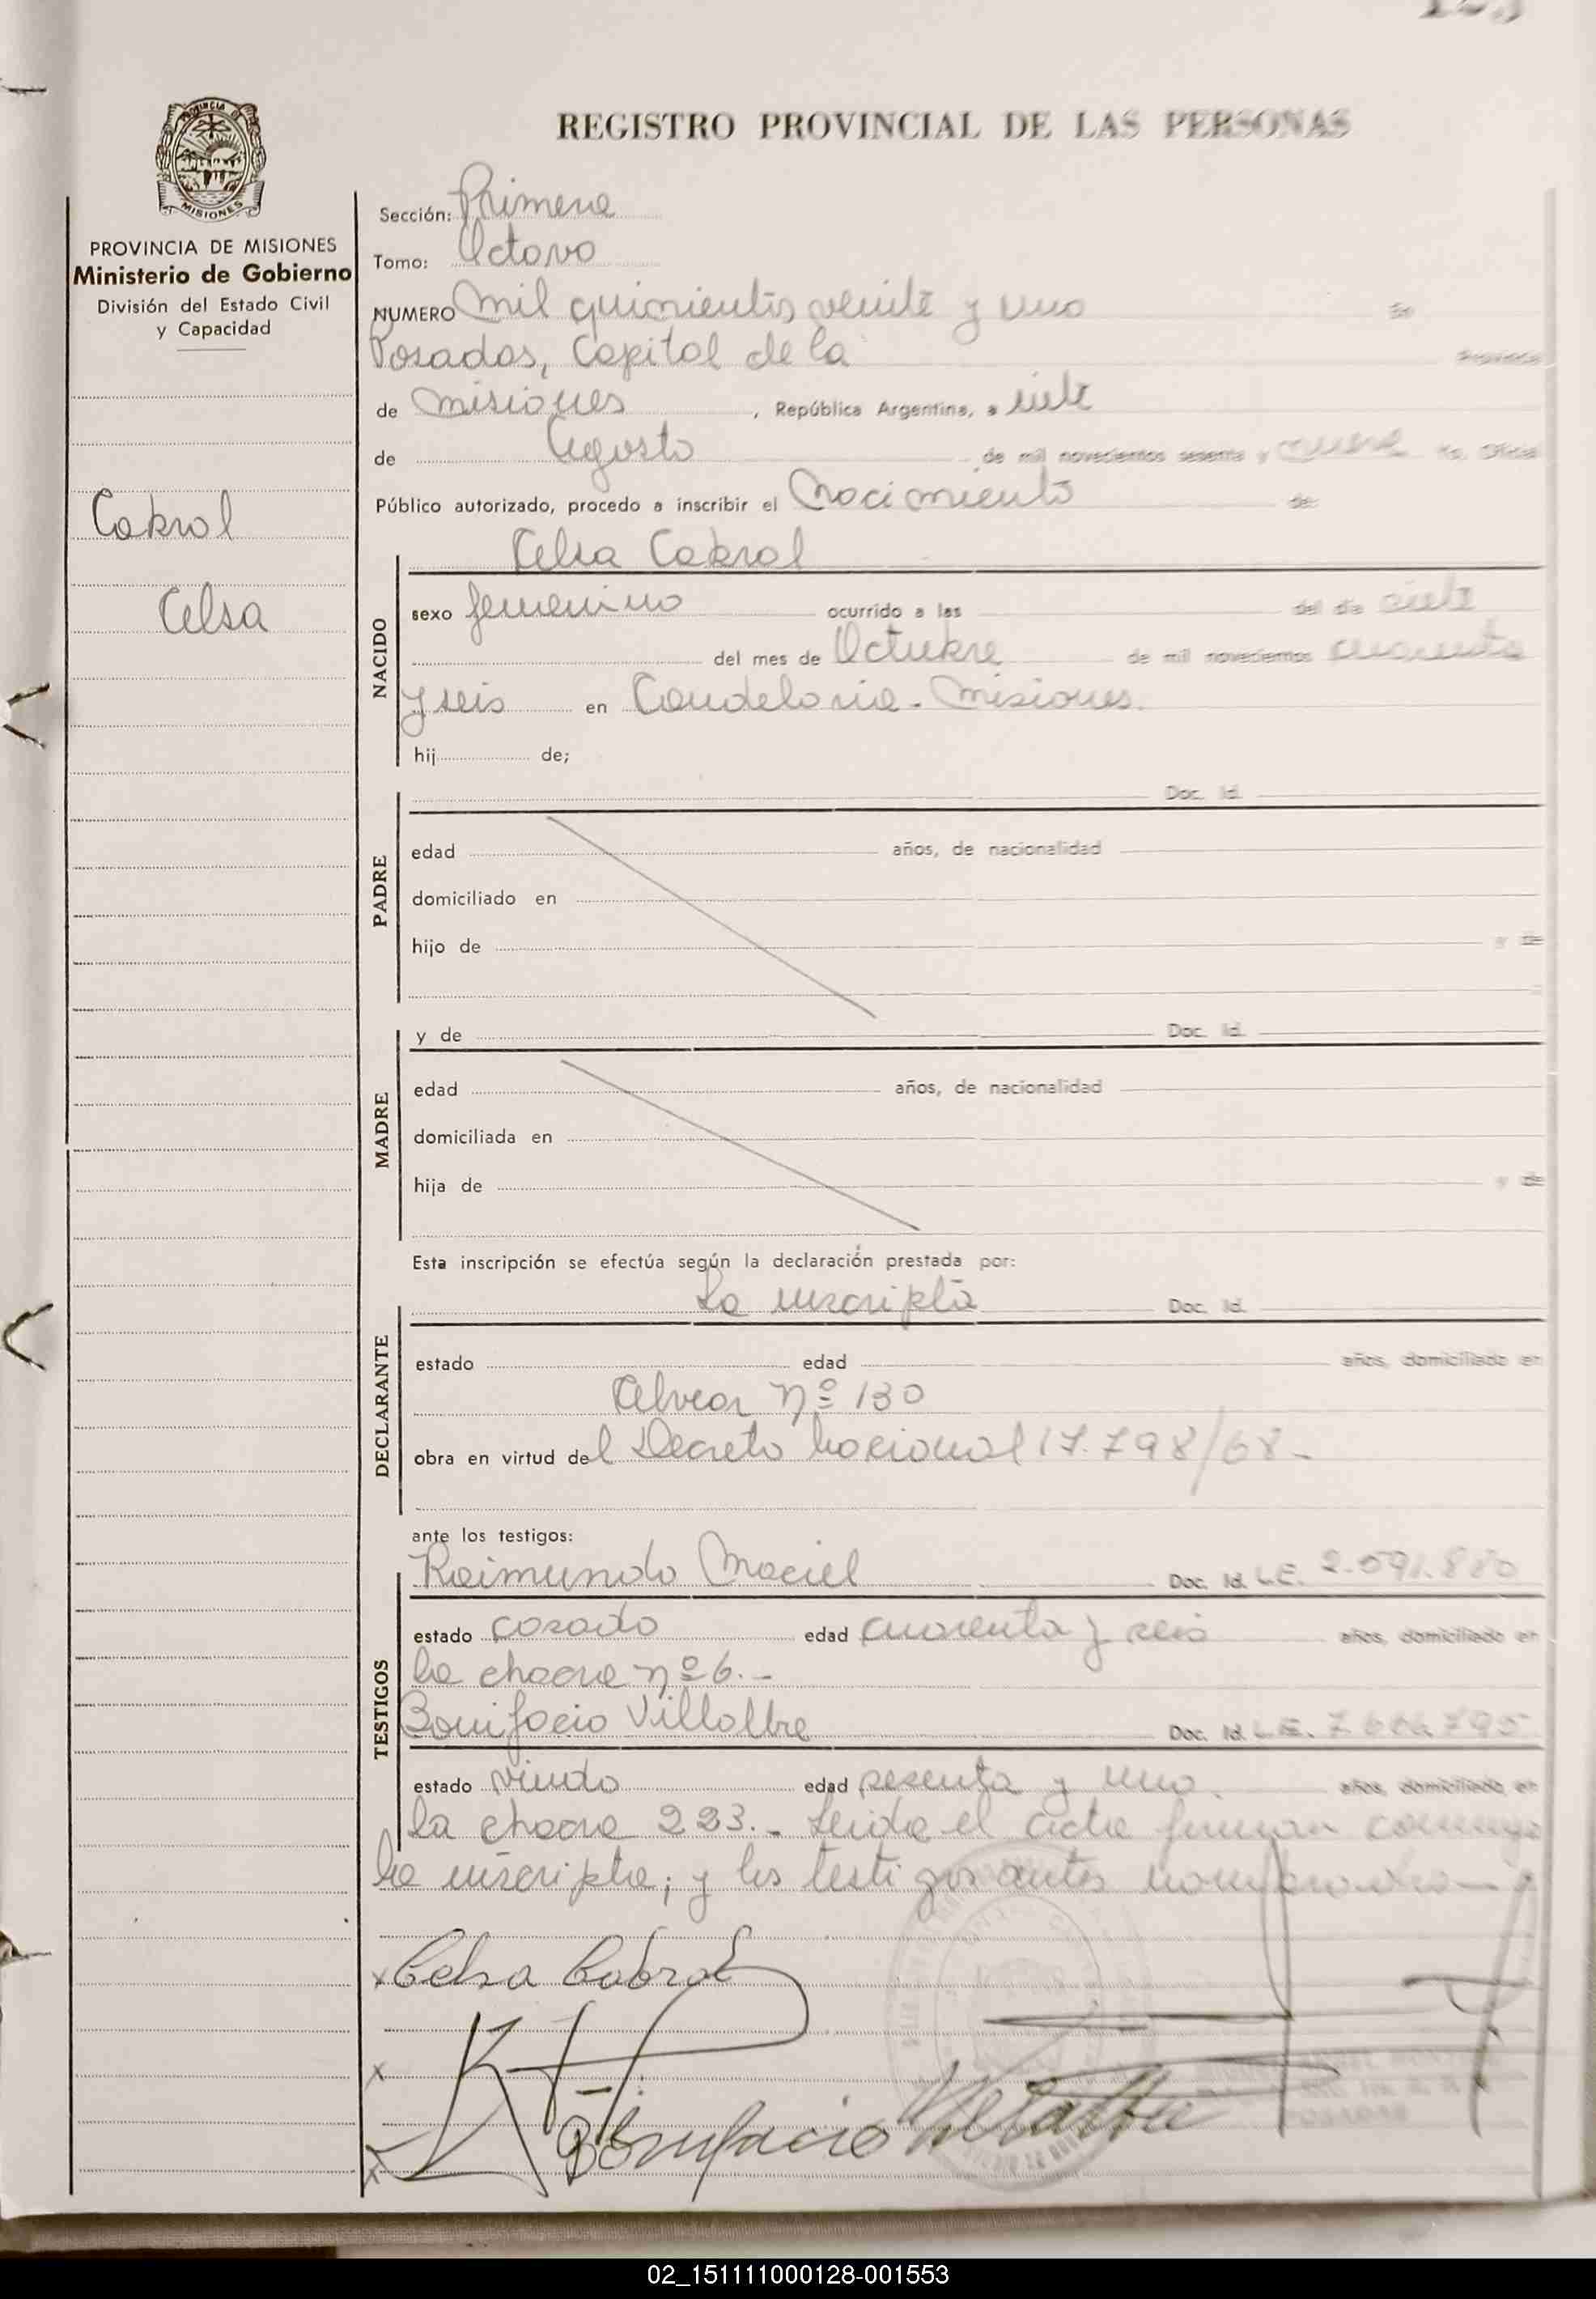 REGISTRO PROVINCIAL DE LAS PERSONAS
PROVINCIA DE MISIONES
Ministerio de Gobierno
División del Estado Civil
y Capacidad
Cabral
Celsa
Sección: Primera
Tomo: Octavo
NUMERO Mil quinientos veinte y uno En
Posadas, Capital de la Provincia
de Misiones, República Argentina, a siete
de Agosto de mil novecientos sesenta y nueve Yo, Oficial
Público autorizado, procedo a inscribir el Nacimiento de:
Celsa Cabral
NACIDO
sexo femenino ocurrido a las del día siete
del mes de Octubre de mil novecientos cuarenta
y seis en Candelaria - Misiones.
hij de;
PADRE
Doc. Id.
edad años, de nacionalidad
domiciliado en
hijo de y de
MADRE
y de Doc. Id.
edad años, de nacionalidad
domiciliada en
hija de y de
Esta inscripción se efectúa según la declaración prestada por:
DECLARANTE
La inscripta Doc. Id.
estado edad años, domiciliado en
Alvear Nº 130
obra en virtud del Decreto Nacional 17.798/68-
ante los testigos:
TESTIGOS
Raimundo Maciel Doc. Id. L.E. 2.591.880
estado casado edad cuarenta y seis años, domiciliado en
la chacra nº 6.-
Bonifacio Villalba Doc. Id. L.E.
estado viudo edad sesenta y uno años, domiciliado en
la chacra 223.- Leida el acta firman conmigo
la inscripta; y los testigos antes nombrados
x Celsa Cabral
x
x Bonifacio Villalba
02_151111000128-001553